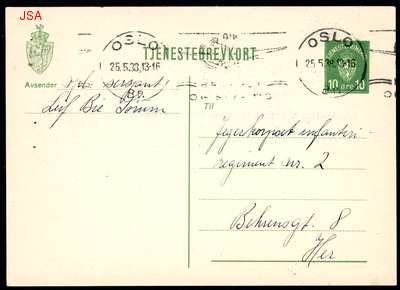 JSA
TJENESTEBREVKORT
OSLO
25.5.38.13-16
OSLO
25.5.38.13-16
TJENESTEFRIMERKE
10 øre 10
Avsender
sersjant
Leif Bie
Til
Jegerkorpset infanteri-
regiment nr. 2
Behrensgt. 8
Her